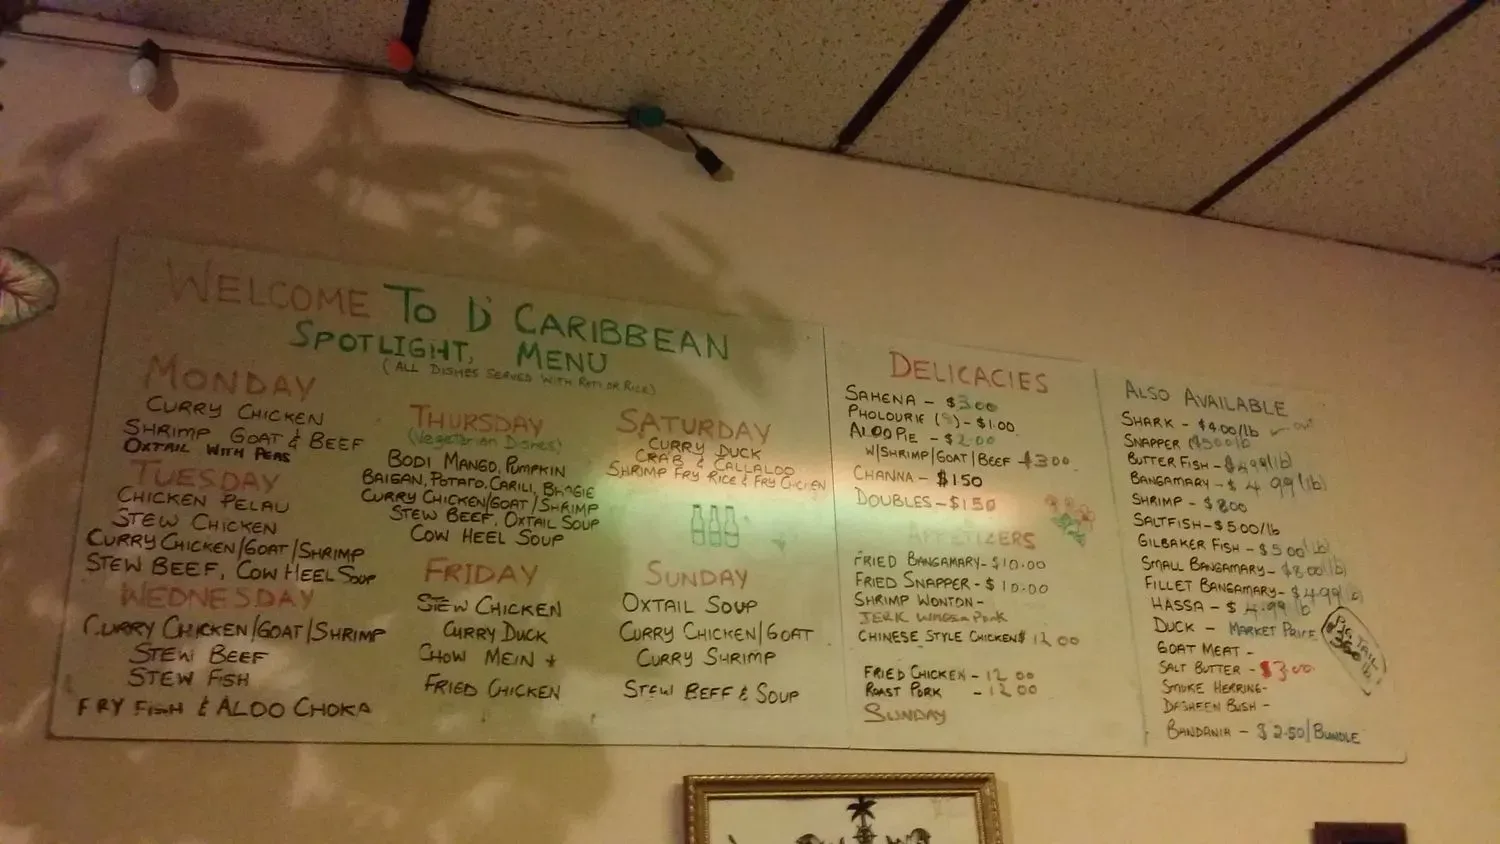 WELCOME TO D' CARIBBEAN
SPOTLIGHT, MENU
(ALL DISHES SERVED WITH ROTI OR RICE)
MONDAY
CURRY CHICKEN
SHRIMP GOAT & BEEF
OXTAIL WITH PEAS
TUESDAY
CHICKEN PELAU
STEW CHICKEN
CURRY CHICKEN/GOAT/SHRIMP
STEW BEEF, COW HEEL SOUP
WEDNESDAY
CURRY CHICKEN/GOAT/SHRIMP
STEW BEEF
STEW FISH
FRY FISH & ALOO CHOKA
THURSDAY
(Vegetarian Dishes)
BODI MANGO, PUMPKIN
BAIGAN, POTATO, CARILI, BHAGIE
CURRY CHICKEN/GOAT/SHRIMP
STEW BEEF, OXTAIL SOUP
COW HEEL SOUP
FRIDAY
STEW CHICKEN
CURRY DUCK
CHOW MEIN +
FRIED CHICKEN
SATURDAY
CURRY DUCK
CRAB & CALLALOO
SHRIMP FRY RICE & FRY CHICKEN
SUNDAY
OXTAIL SOUP
CURRY CHICKEN/GOAT
CURRY SHRIMP
STEW BEEF & SOUP
DELICACIES
SAHENA - $3.00
PHOLOURIE (5) - $1.00
ALOO PIE - $2.00
W/SHRIMP/GOAT/BEEF - $3.00
CHANNA - $1.50
DOUBLES - $1.50
APPETIZERS
FRIED BANGAMARY - $10.00
FRIED SNAPPER - $10.00
SHRIMP WONTON -
JERK WINGS Pork
CHINESE STYLE CHICKEN $12.00
FRIED CHICKEN - 12.00
ROAST PORK - 12.00
SUNDAY
ALSO AVAILABLE
SHARK - $4.00/lb out
SNAPPER $5.00lb
BUTTER FISH - $4.99(lb)
BANGAMARY - $4.99(lb)
SHRIMP - $8.00
SALTFISH - $5.00/lb
GILBAKER FISH - $5.00(lb)
SMALL BANGAMARY - $8.00(lb)
FILLET BANGAMARY - $4.99(lb)
HASSA - $4.99 lb
DUCK - MARKET PRICE
PIG TAIL
$3.50 lb
GOAT MEAT -
SALT BUTTER - $3.00
SMOKE HERRING -
DASHEEN BUSH -
BANDANIA - $2.50/BUNDLE